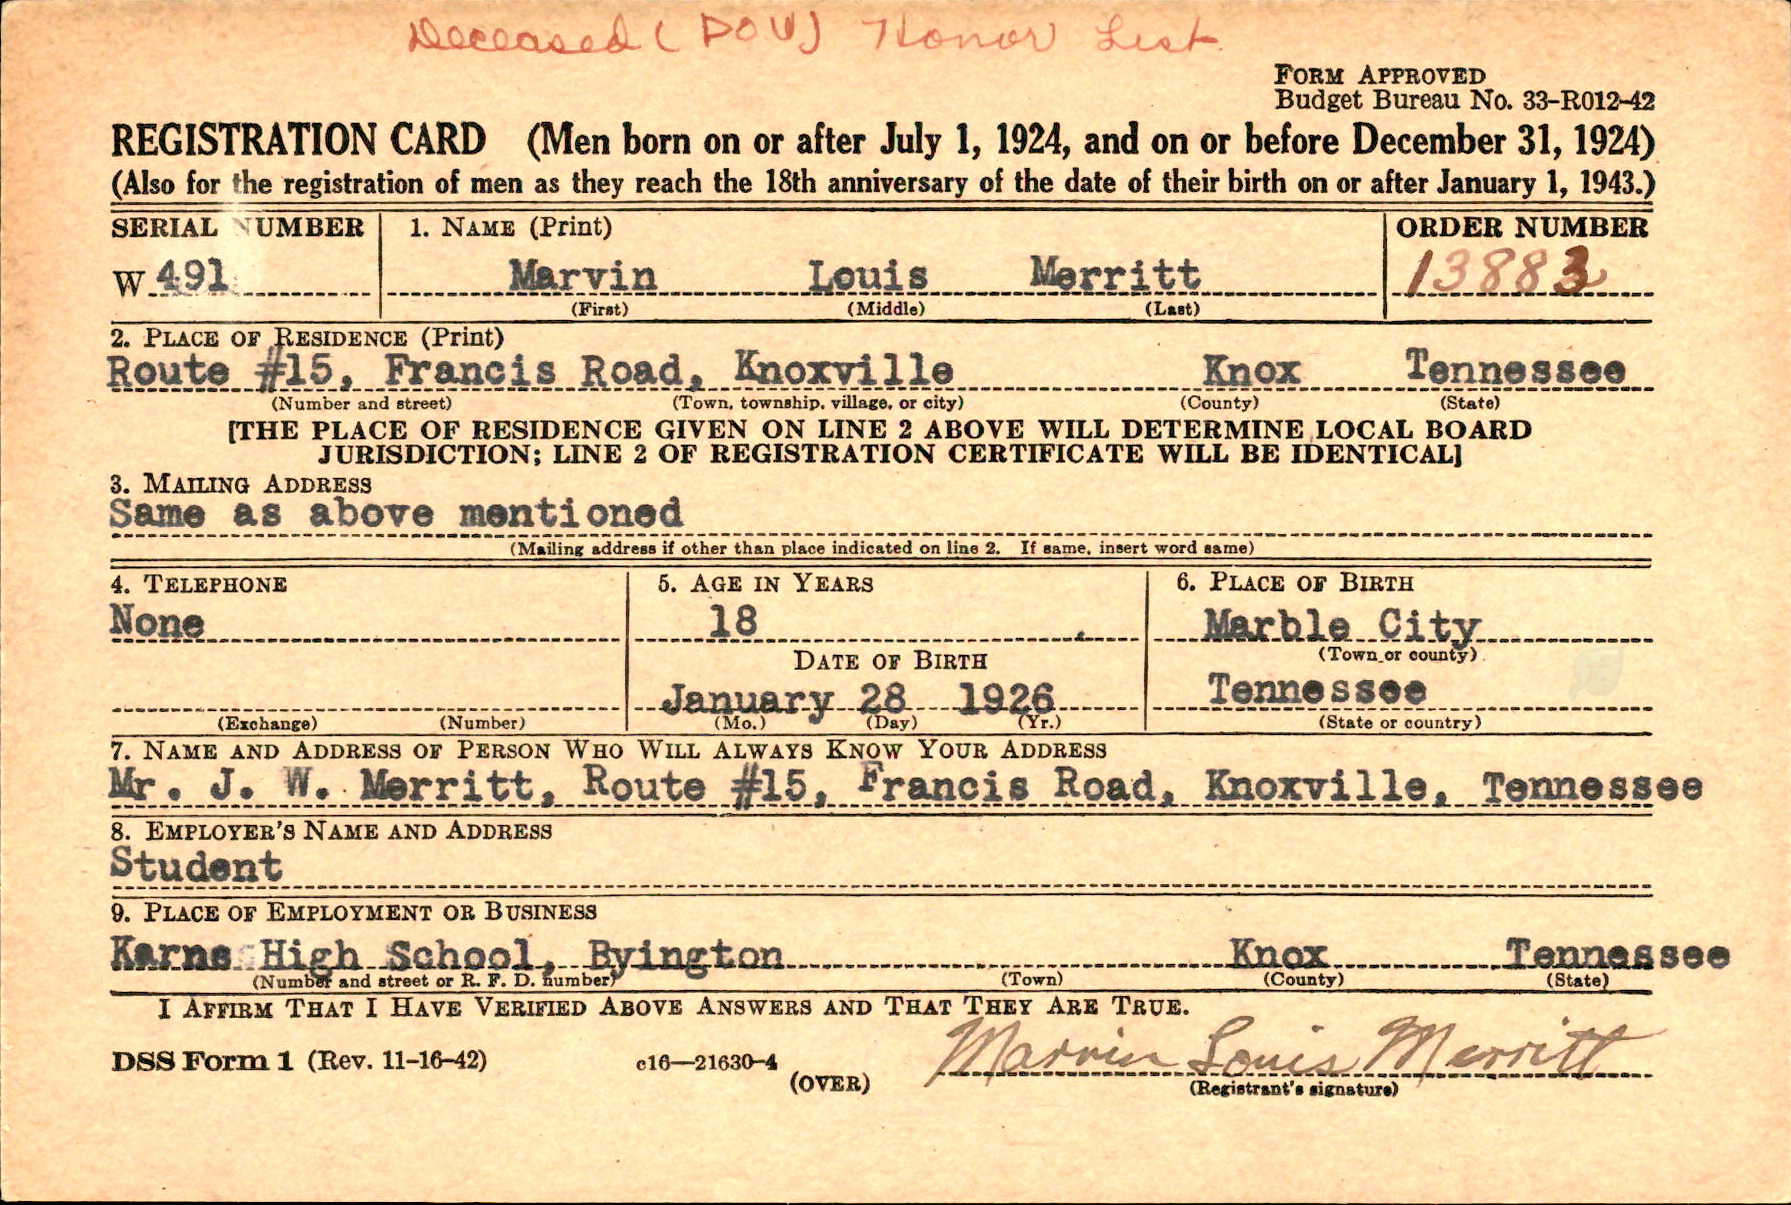 Deceased (DOW) Honor List
FORM APPROVED
Budget Bureau No. 33-R012-42
REGISTRATION CARD (Men born on or after July 1, 1924, and on or before December 31, 1924)
(Also for the registration of men as they reach the 18th anniversary of the date of their birth on or after January 1, 1943.)
SERIAL NUMBER 1. NAME (Print) ORDER NUMBER
W 491 Marvin Louis Merritt 13883
(First) (Middle) (Last)
2. PLACE OF RESIDENCE (Print)
Route #15, Francis Road, Knoxville Knox Tennessee
(Number and street) (Town, township, village, or city) (County) (State)
[THE PLACE OF RESIDENCE GIVEN ON LINE 2 ABOVE WILL DETERMINE LOCAL BOARD
JURISDICTION; LINE 2 OF REGISTRATION CERTIFICATE WILL BE IDENTICAL]
3. MAILING ADDRESS
Same as above mentioned
(Mailing address if other than place indicated on line 2. If same, insert word same)
4. TELEPHONE 5. AGE IN YEARS 6. PLACE OF BIRTH
None 18 Marble City
DATE OF BIRTH (Town or county)
January 28 1926 Tennessee
(Exchange) (Number) (Mo.) (Day) (Yr.) (State or country)
7. NAME AND ADDRESS OF PERSON WHO WILL ALWAYS KNOW YOUR ADDRESS
Mr. J. W. Merritt, Route #15, Francis Road, Knoxville, Tennessee
8. EMPLOYER'S NAME AND ADDRESS
Student
9. PLACE OF EMPLOYMENT OR BUSINESS
Karns High School, Byington Knox Tennessee
(Number and street or R. F. D. number) (Town) (County) (State)
I AFFIRM THAT I HAVE VERIFIED ABOVE ANSWERS AND THAT THEY ARE TRUE.
DSS Form 1 (Rev. 11-16-42) c16—21630-4 Marvin Louis Merritt
(OVER) (Registrant's signature)